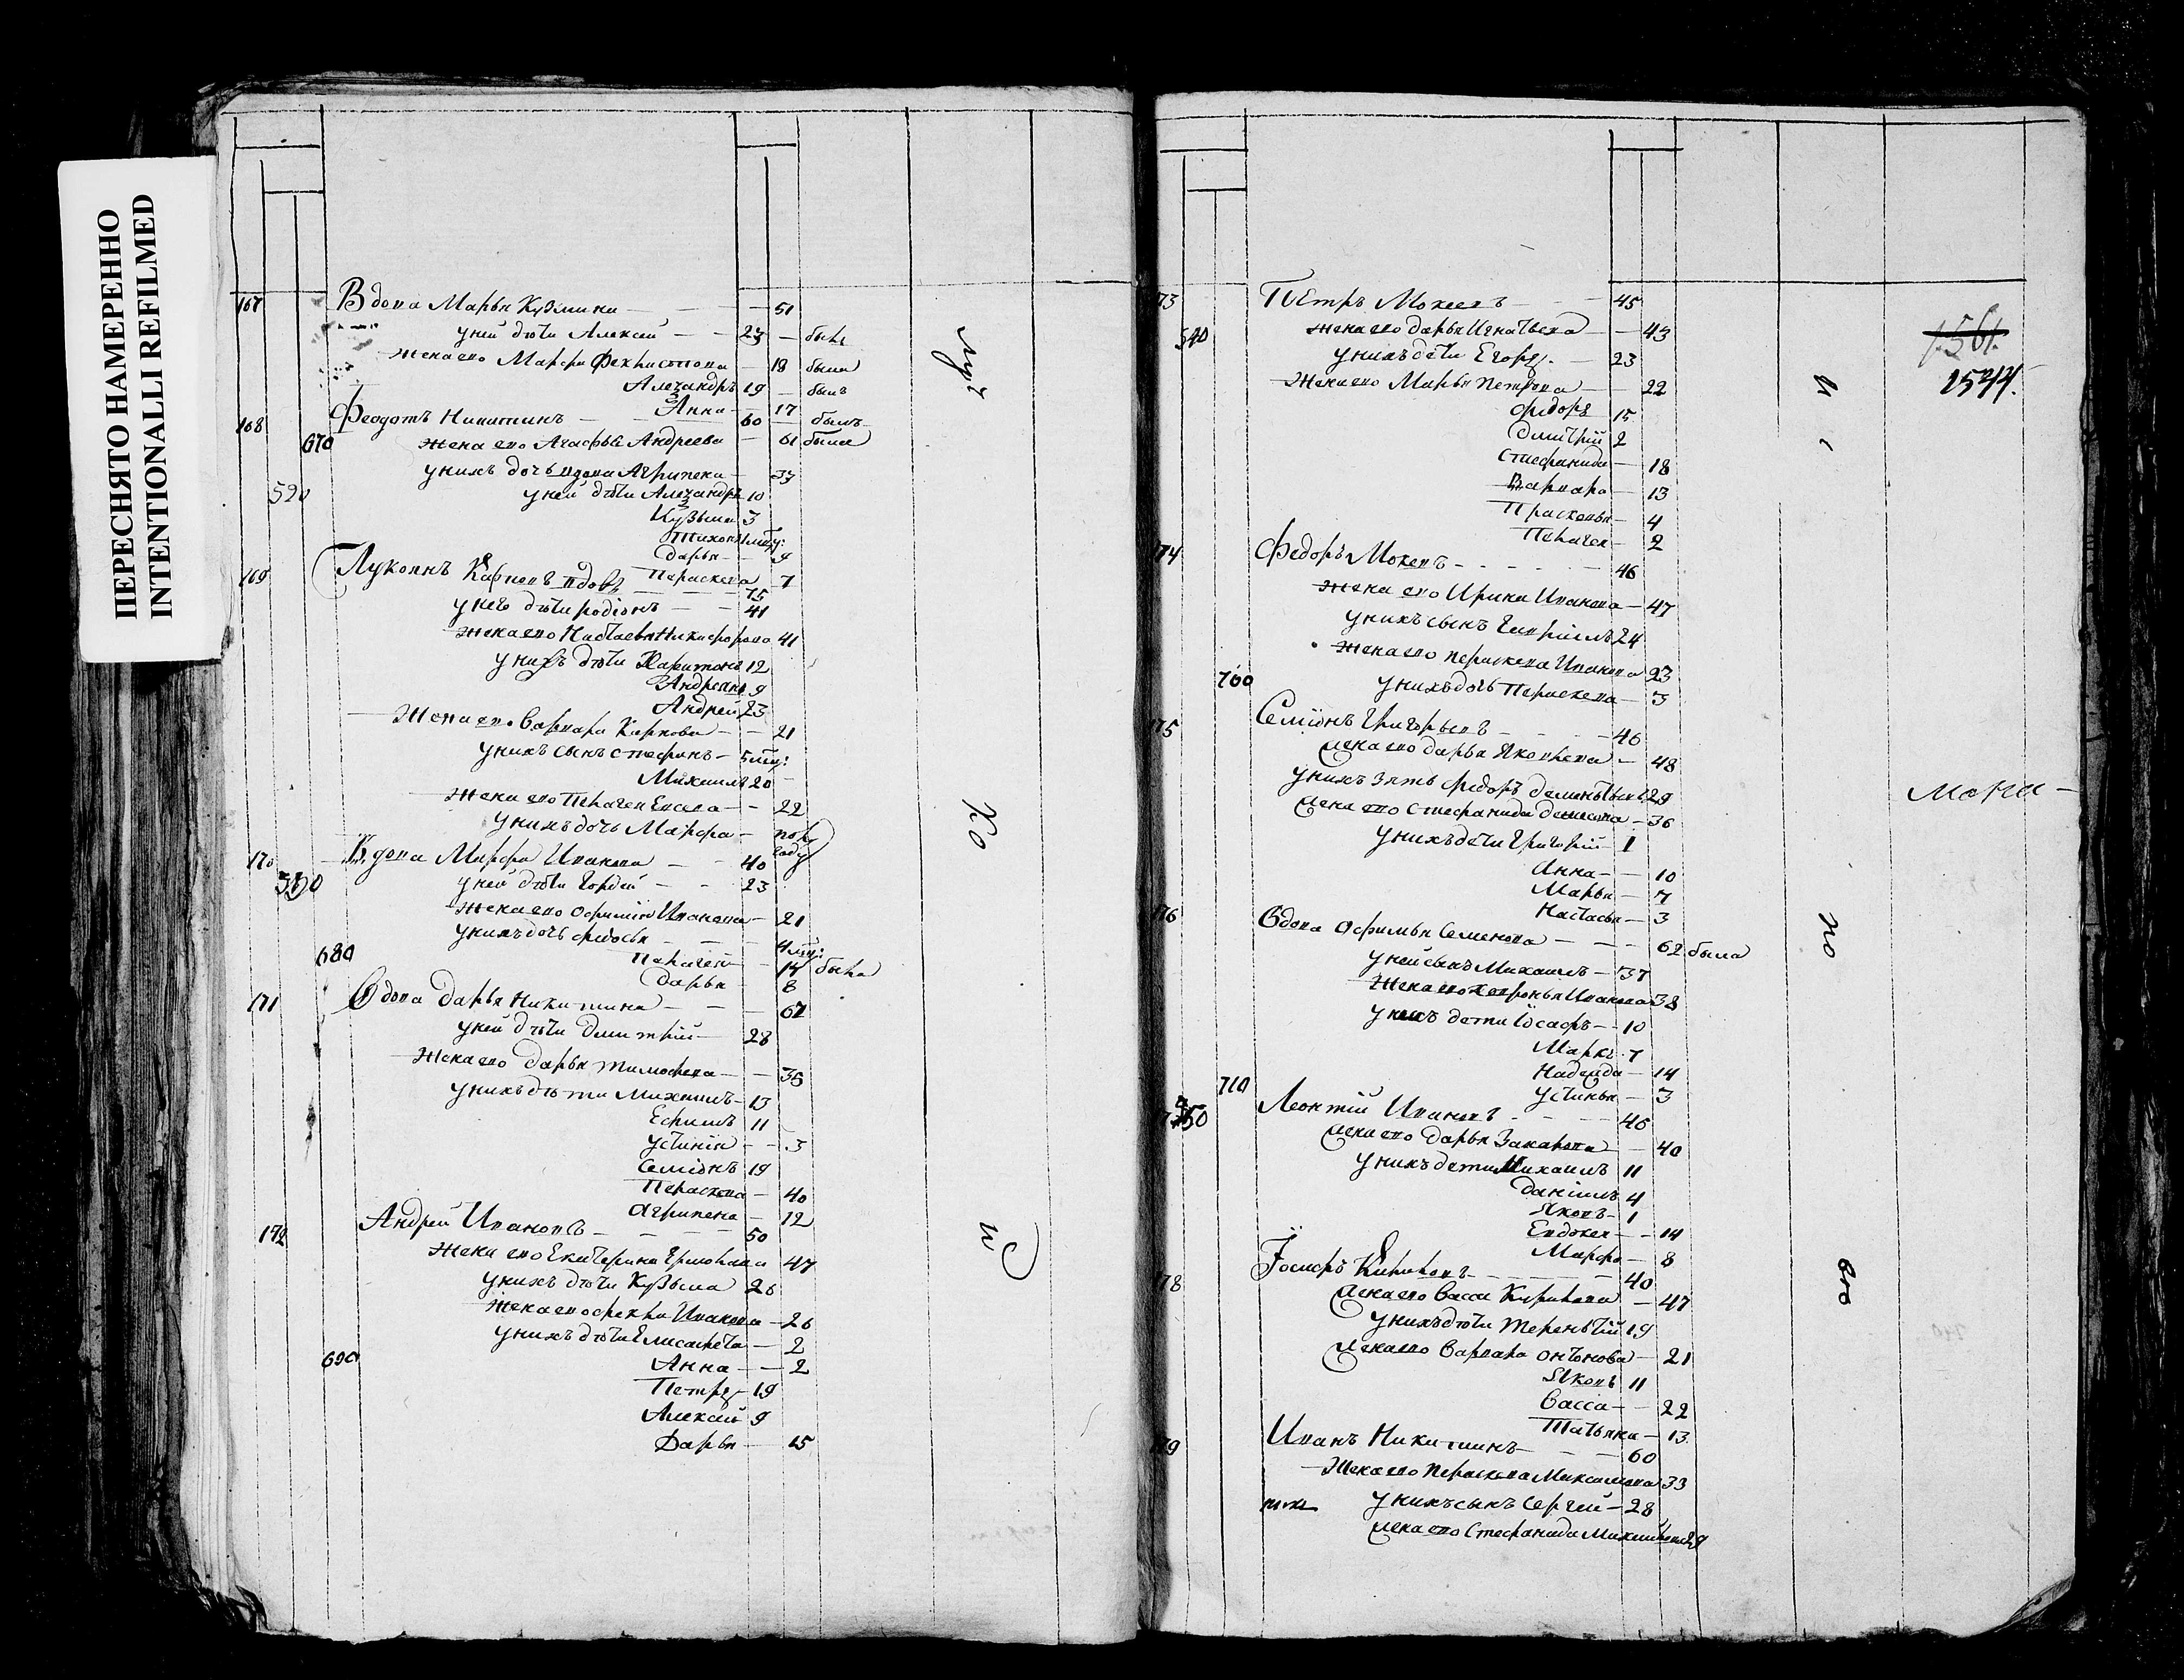 ПЕРЕСНЯТО НАМЕРЕННО
INTENTIONALLI REFILMED
167 Вдова Марья Кузмина — 51
у ней дѣти Алексей — 23 — былъ
жена его Марфа Феклистова — 18 была
Александръ 19 — былъ
Анна — 17
168 Феодотъ Никитинъ — 60 — былъ
670 жена его Агафья Андреева — 61 была
у нихъ дочь вдова Агрипена — 37
520 у ней дѣти Александръ 10
Кузьма 3
Тихонъ
Дарья — 9
Пераскева 7
169 Лукоянъ Карпевъ вдовъ 75
у него дѣти Родіонъ — 41
жена его Настасья Никифорова 41
у нихъ дѣти Харитонъ 12
Андреянъ 9
Андрей 23
жена его Варвара Карпова — 21
у нихъ сынъ Стефанъ — 5 мец:
Михаилъ 20
жена его Пелагея Евсева — 22
у нихъ дочь Марфа — полъ году
170 Вдова Марфа Иванова — 40
530 у ней дѣти Гордей — 23
жена его Офимія Иванова — 21
у нихъ дочь Федосья — 4 мец:
680 Пелагея — 14 была
Дарья — 8
171 Вдова Дарья Никитина — 67
у ней дѣти Дмитрій — 28
жена его Дарья Тимофева — 36
у нихъ дѣти Михаилъ — 13
Ефимъ 11
Устинія — 3
Семіонъ 19
Пераскева — 40
Агрипена — 12
172 Андрей Ивановъ — 50
жена его Екатерина Ермолаева 47
у нихъ дѣти Кузьма 26
жена его Фекла Иванова — 26
у нихъ дѣти Елисавета — 2
690 Анна — 2
Петръ 19
Алексей 9
Дарья — 15
ко
73 Петръ Мокеевъ — 45
540 жена его Дарья Игнатьева — 43
у нихъ дети Егоръ — 23
жена его Марья Петрова — 22
Федоръ 15
Дмитрій 2
Стефанида — 18
Варвара — 13
Прасковья — 4
Пелагея — 2
1561.
1544.
и
74 Федоръ Мокевъ — 46
жена его Ирина Иванова — 47
у нихъ сынъ Гавріилъ 24
жена его Пераскева Иванова 23
700 у нихъ дочь Пераскева — 3
75 Семіонъ Григорьевъ — 46
жена его Дарья Яковлева — 48
у нихъ зять Федоръ Дементьевъ 29
жена его Стефанида — 36
у нихъ дети Григорій 1
Анна — 10
Марья — 7
Настасья — 3
мона —
76 Вдова Офимья Семенова — 62 была
у ней сынъ Михаилъ — 37
жена его Хевронья Иванова 38
у нихъ дети Іосафъ — 10
Маркъ 7
Надежда — 14
710 Устинья — 3
по
550 Леонтій Ивановъ — 46
жена его Дарья Захарова — 40
у нихъ дети Михаилъ 11
Даніилъ 4
Яковъ — 1
Евдокея — 14
Марфа — 8
78 Іосифъ Кириловъ — 40
жена его Васса Кирилова — 47
у нихъ дѣти Терентій 19
жена его Варвара Онтонова — 21
Яковъ 11
Васса — 22
Татьяна — 13
79 Иванъ Никитинъ — 60
жена его Пераскева Максимова 33
у нихъ сынъ Сергей — 28
жена его Стефанида Михайлова 29